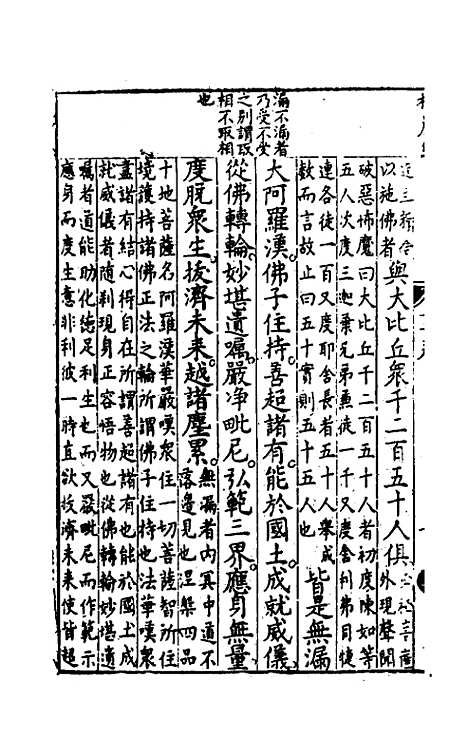 以施佛者
與大比丘眾千二百五十人俱
外現聲聞
破惡怖魔曰大比丘千二百五十人者初度陳如等
五人次度三迦葉兄弟兼徒一千又度舍利佛目犍
連各徒一百又度耶舍長者五十人舉成
數而言故止曰五十實則五十五人也
皆是無漏
漏不漏者
乃受不受
之別謂取
相不取相
也
大阿羅漢。佛子住持。善超諸有。能於國土。成就威儀。
從佛轉輪。妙堪遺囑。嚴淨毗尼。弘範三界。應身無量。
度脫眾生。拔濟未來。越諸塵累。
無漏者內冥中道不
落邊見也涅槃四品
十地菩薩名阿羅漢華嚴嘆眾住一切菩薩智所住
境護持諸佛正法之輪所謂佛子住持也法華嘆眾
盡諸有結心得自在所謂善超諸有也能於國土成
就威儀者隨剎現身正容悟物也從佛轉輪妙堪遺
囑者道能助化德足利生也而又嚴毗尼而作範示
應身而度生意非利彼一時直欲拔濟未來使皆超